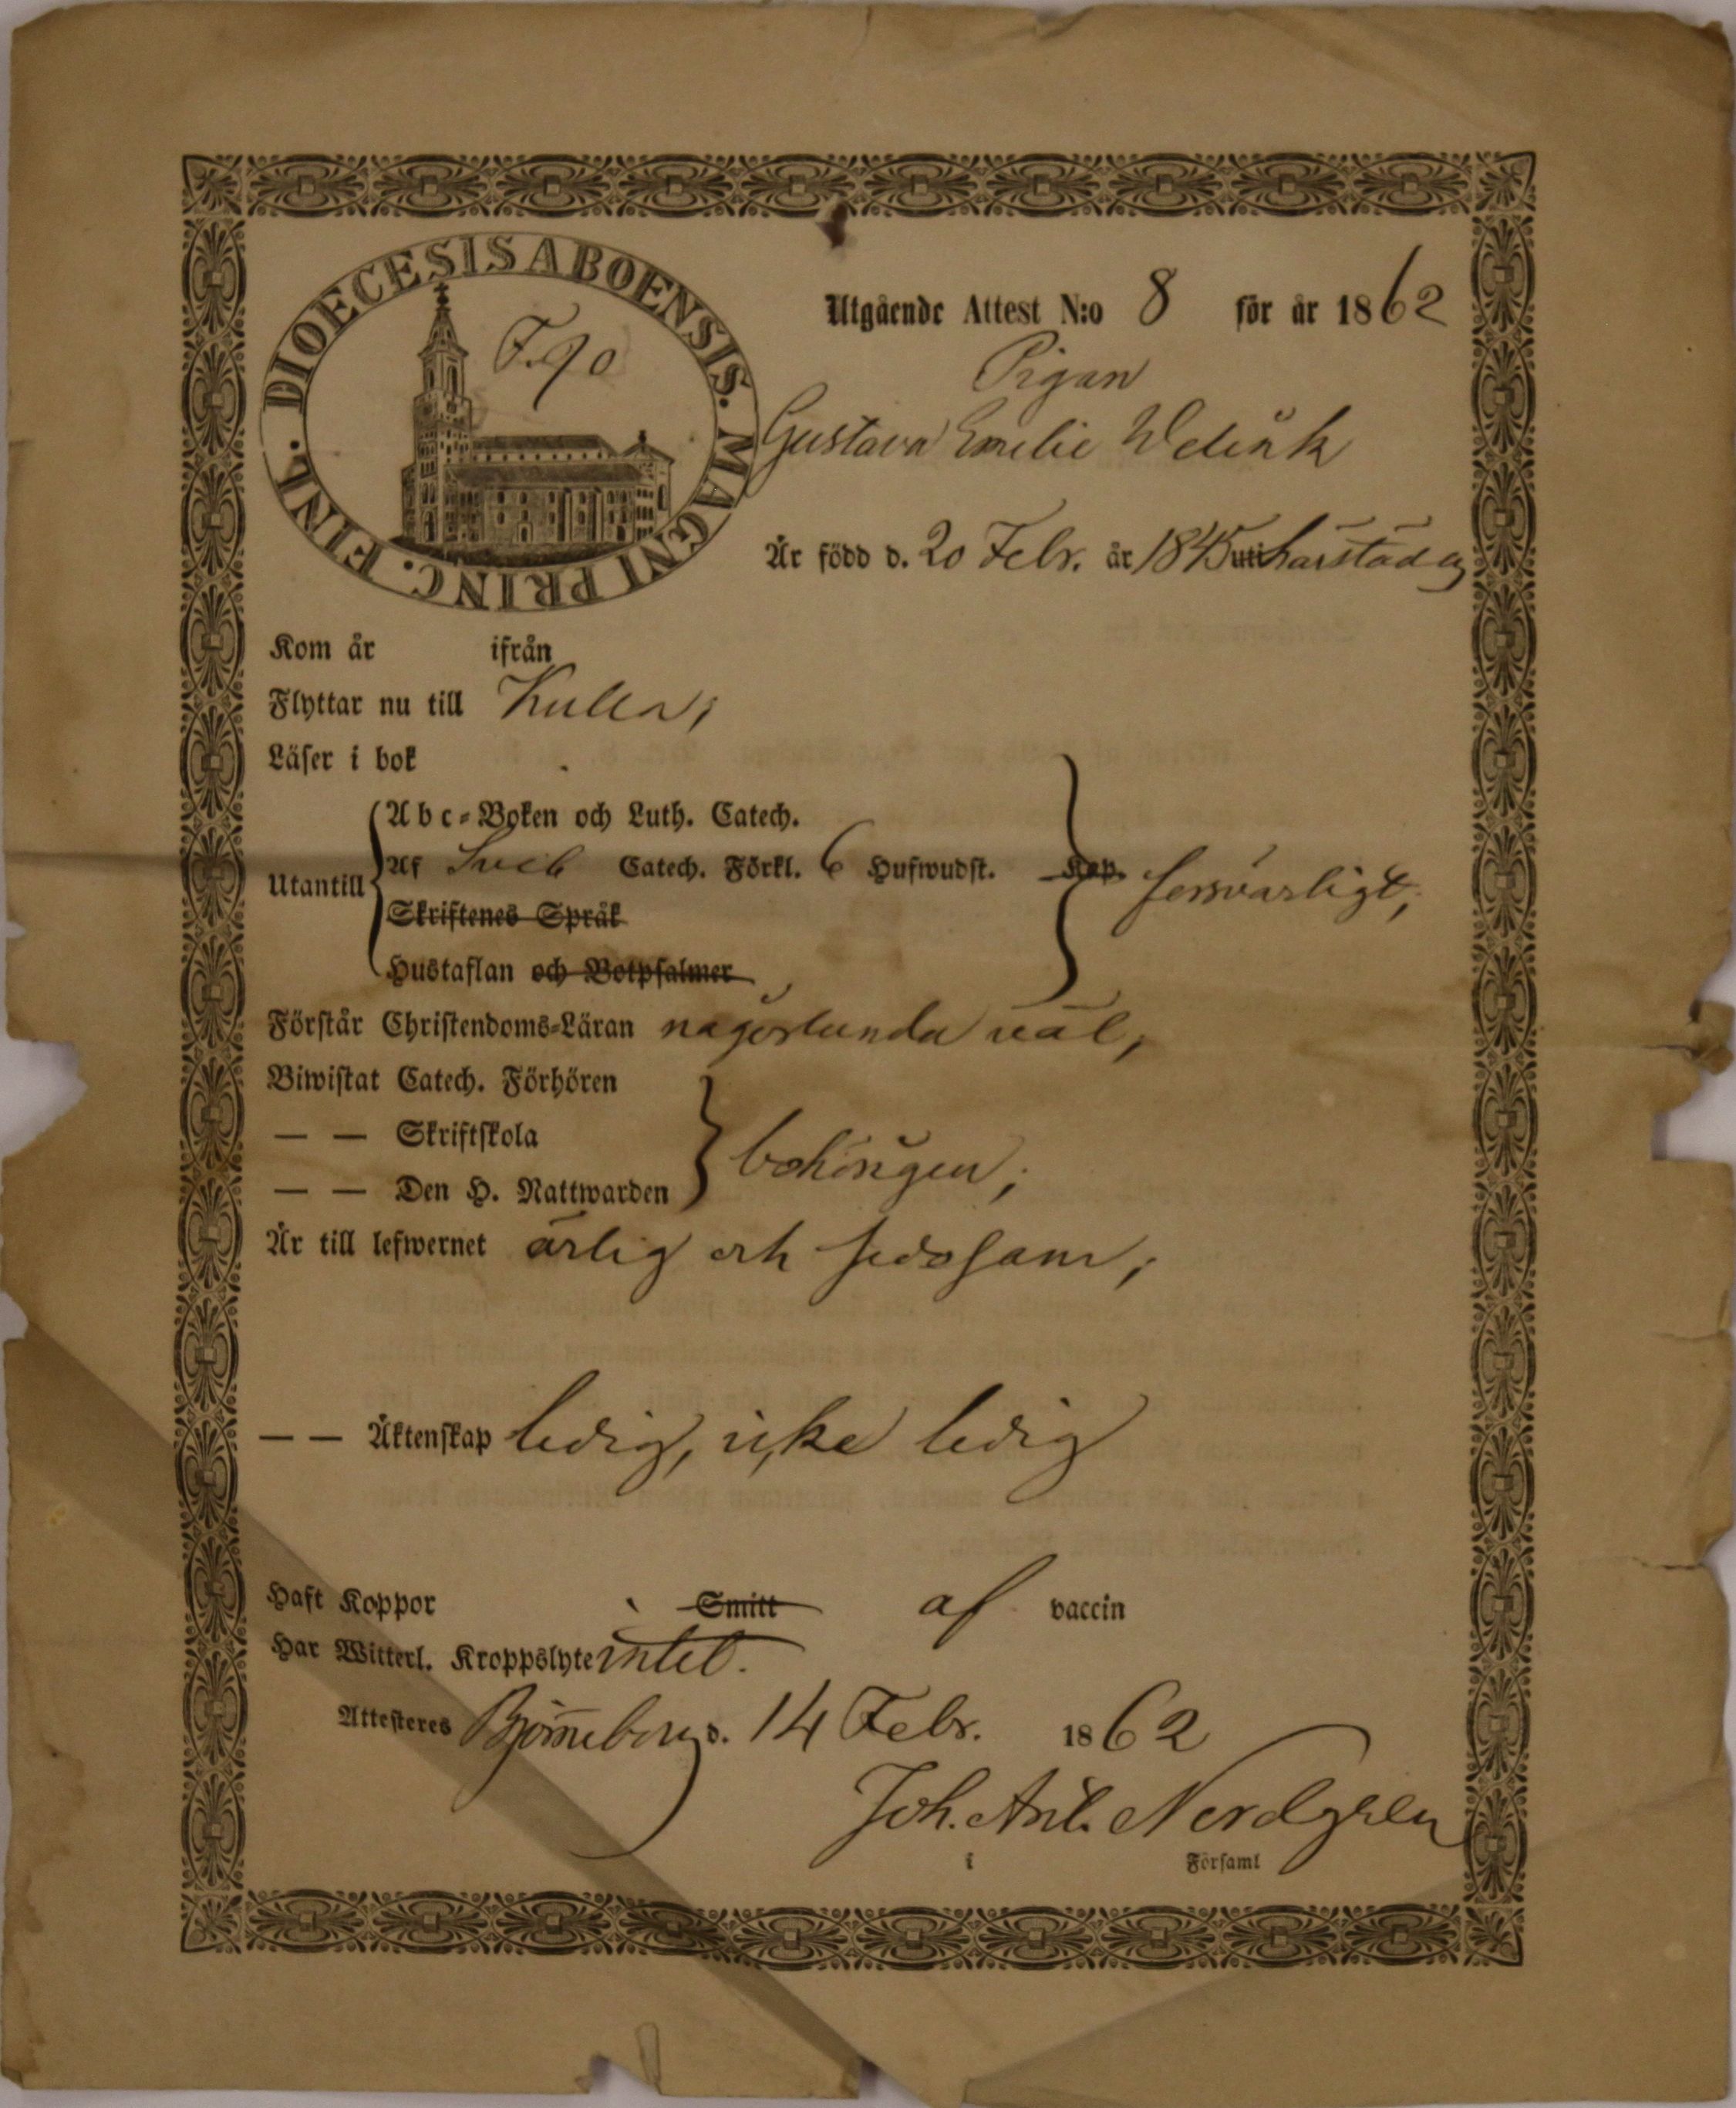 DIOECESIS ABOENSIS. MAGNI PRINC. FINL.
F. 90
Utgående Attest N:o 8 för år 1862
Pigan
Gustava Emelie
Är född d. 20 Febr. år 1845 uti härstädes
Kom år ifrån
Flyttar nu till Kulla;
Läser i bok
Utantill
Abc-Boken och Luth. Catech.
Af Sveb Catech. Förkl. 6 Hufwudst. Kap. försvarligt;
Skriftenes Språk
Hustaflan och Botpsalmer
Förstår Christendoms-Läran någorlunda väl;
Biwistat Catech. Förhören
— — Skriftskola
— — Den H. Nattwarden
behörigen;
Är till lefwernet ärlig och sedesam;
— — Äktenskap ledig, icke ledig
Haft Koppor Smitt af vaccin
Har Witterl. Kroppslyte intet.
Attesteres Björneborg d. 14 Febr. 1862
Joh. Ant. Nordgren
i Församl